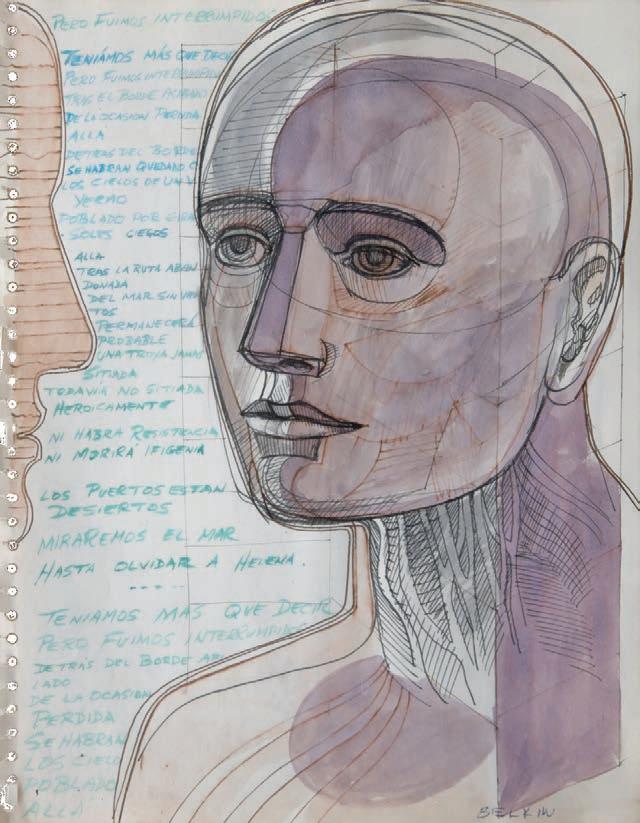 PERO FUIMOS INTERRUMPIDOS
TENIÁMOS MÁS QUE DECIR
PERO FUIMOS INTERRUMPIDO
TRAS EL BORDE
DE LA OCASION PERDIDA
ALLA
DETRÁS DEL BORDE
SE HABRAN QUEDADO
LOS CIELOS DE UN
YERMO
POBLADO POR
SOLES CIEGOS
ALLA
TRAS LA RUTA ABAN
DONADA
DEL MAR SIN VIEN
TOS
PERMANECERÁ
PROBABLE
UNA TROYA JAMAS
SITIADA
TODAVÍA NO SITIADA
HEROICAMENTE
NI HABRA RESISTENCIA
NI MORIRÁ IFIGENIA
LOS PUERTOS ESTAN
DESIERTOS
MIRAREMOS EL MAR
HASTA OLVIDAR A HELENA.
-----
TENIAMOS MAS QUE DECIR
PERO FUIMOS INTERRUMPIDOS
DETRÁS DEL BORDE AF
LADO
DE LA OCASION
PERDIDA
SE HABRAN
LOS CIELO
POBLADO
ALLA
BELKIN